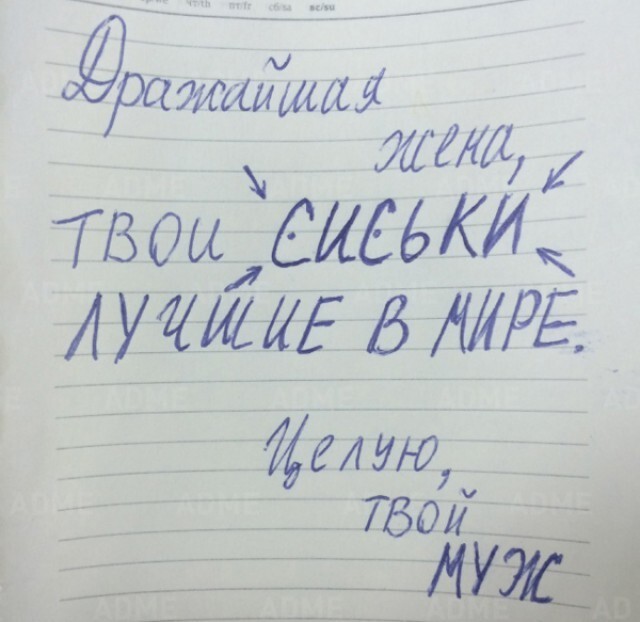 Дражайшая
жена,
ТВОИ СИСЬКИ
ЛУЧШИЕ В МИРЕ.
Целую,
ТВОЙ
МУЖ